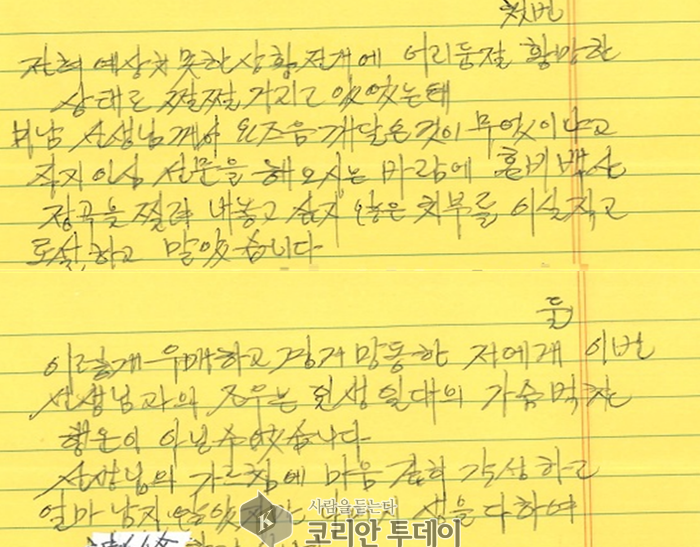 첫번
전혀 예상치 못한 상황전개에 어리둥절 황망한
상태로 쩔쩔 거리고 있었는데
비남 선생님께서 요즈음 깨달은 것이 무엇이냐고
직지인심 선문을 해오시는 바람에 혼비백산
정곡을 찔려 내놓고 싶지 않은 치부를 이실직고
토설하고 말았습니다
둘
이렇게 우매하고 경거망동한 저에게 이번
선생님과의 조우는 일생일대의 가슴벅찬
행운이 아닐수 없습니다
선생님의 가르침에 마음 깊히 각성하고
얼마 남지 생을 다하여
사람을 듣는다
K
코리안 투데이